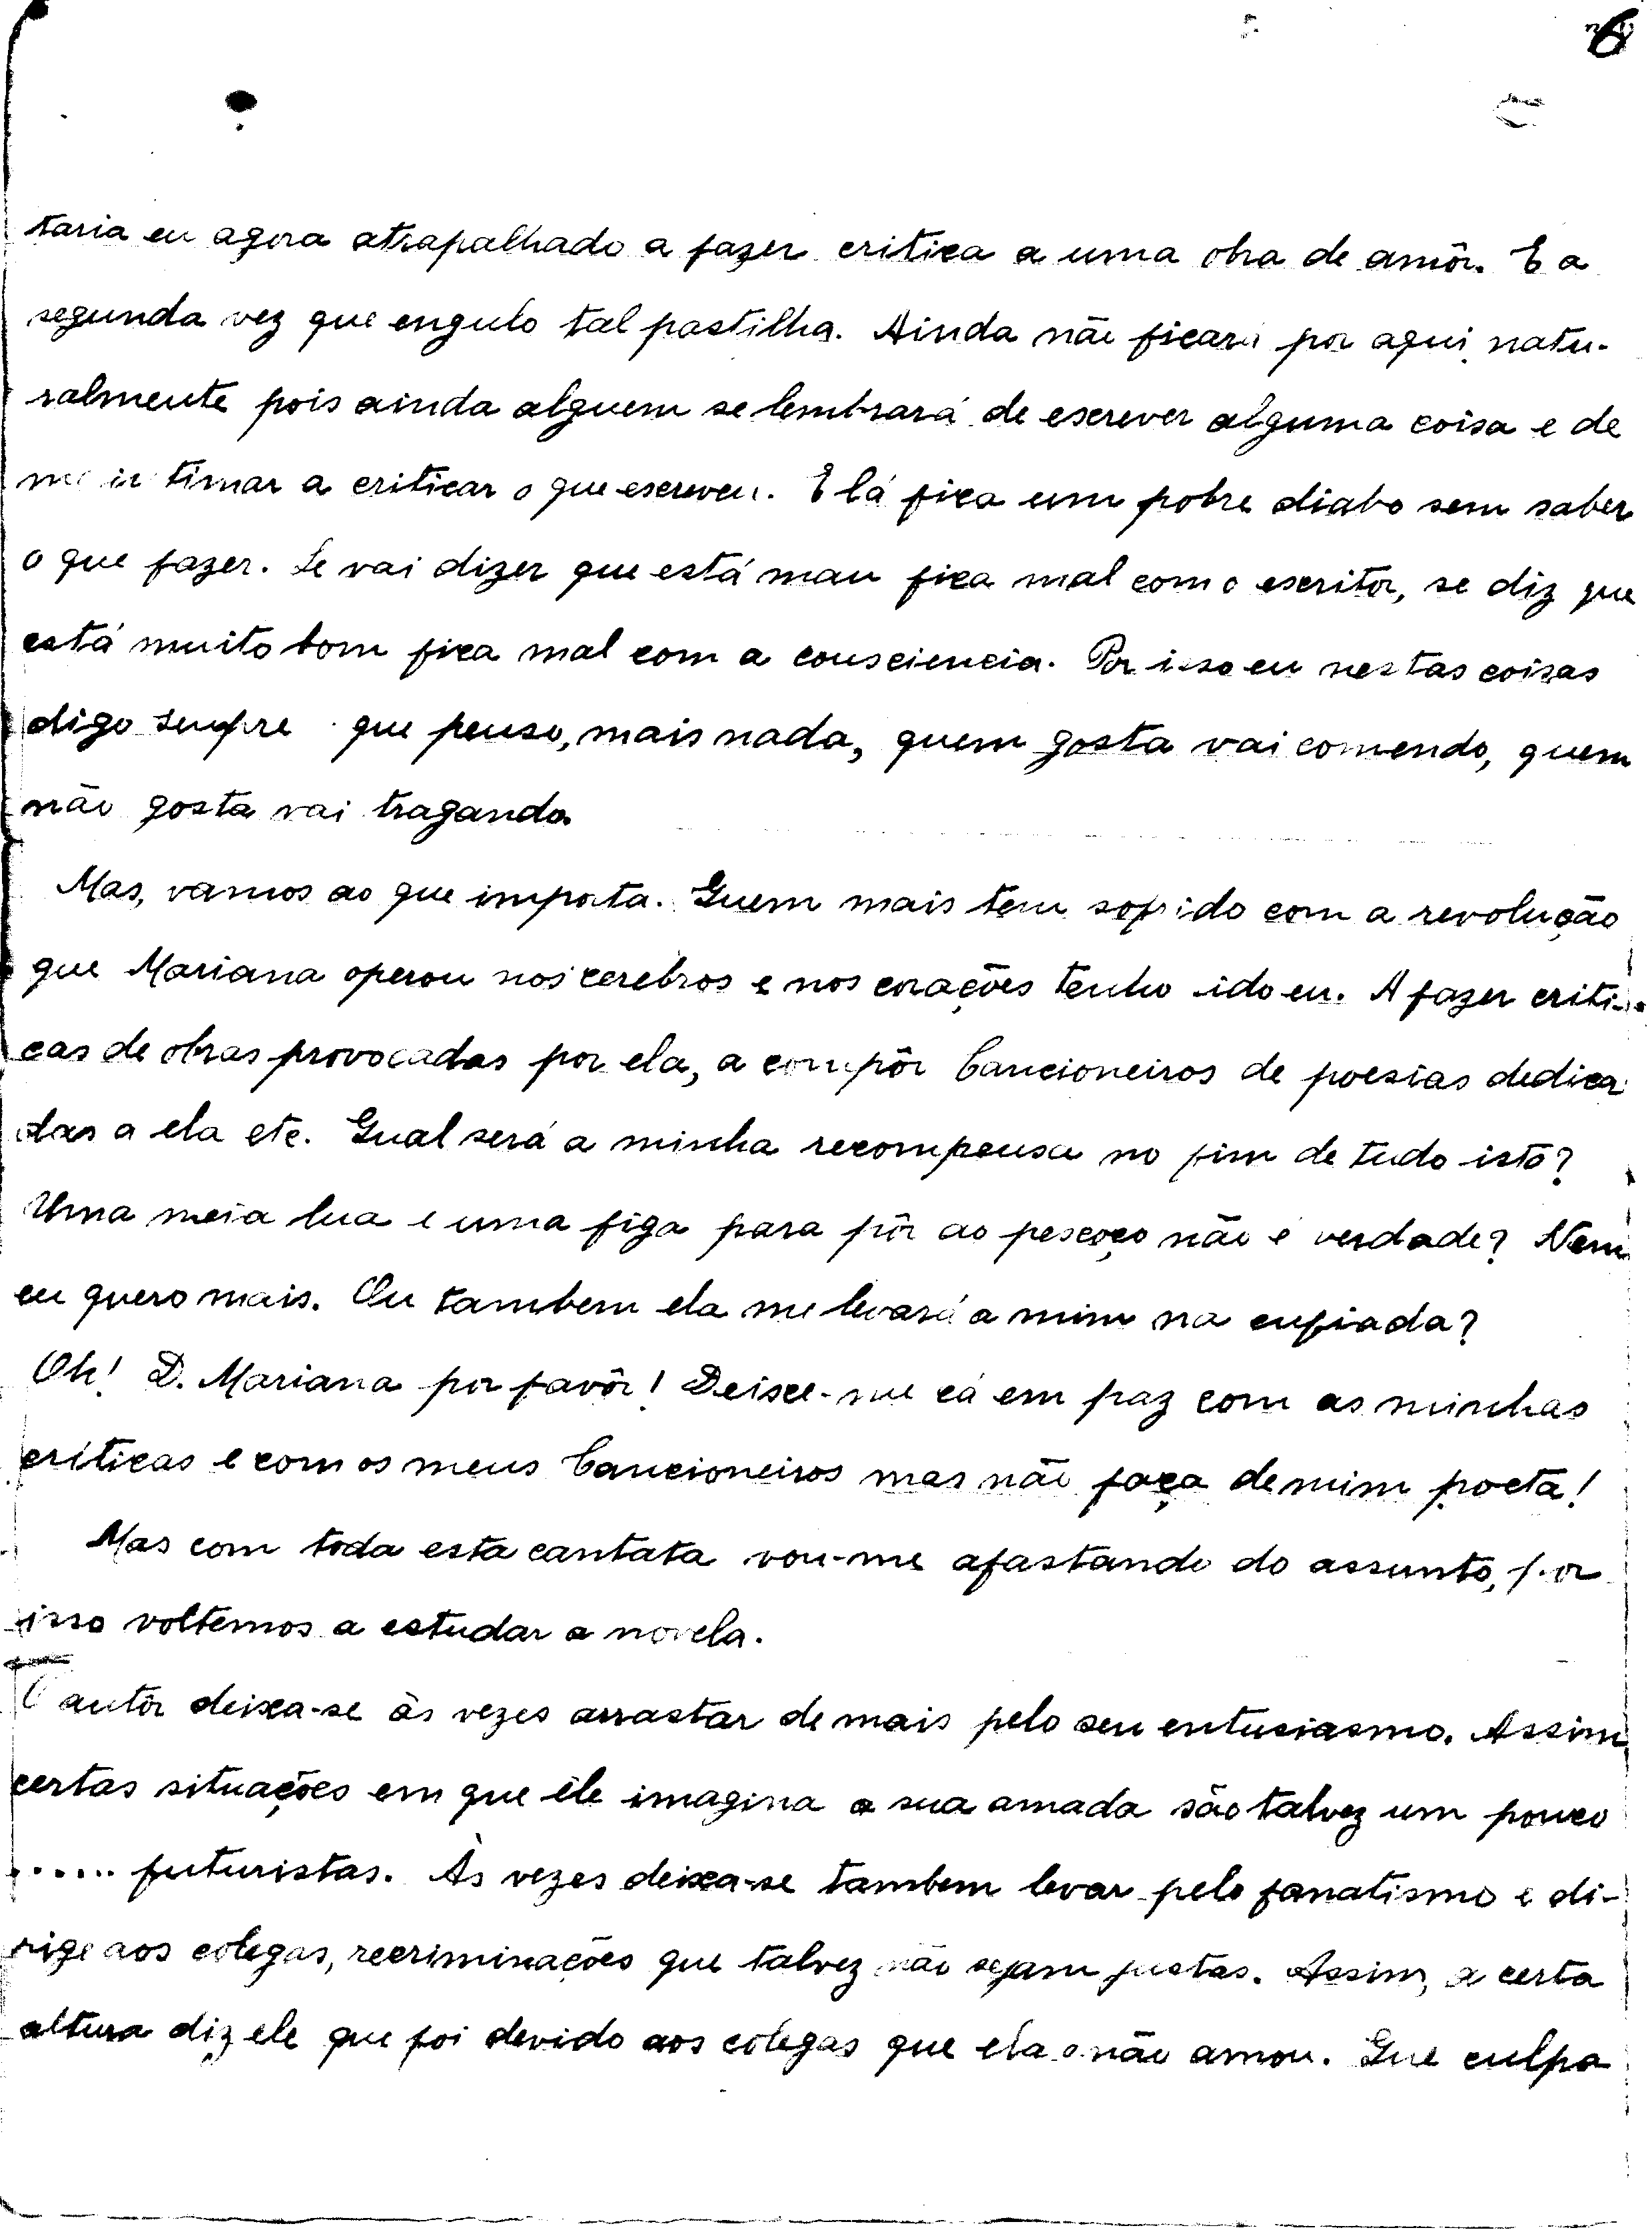 6
taria eu agora atrapalhado a fazer critica a uma obra de amôr. E a
segunda vez que engulo tal pastilha. Ainda não ficará por aqui natu-
ralmente pois ainda alguem se lembrará de escrever alguma coisa e de
me intimar a criticar o que escreveu. E lá fica um pobre diabo sem saber
o que fazer. Se vai dizer que está mau fica mal com o escritor, se diz que
está muito bom fica mal com a consciencia. Por isso eu nestas coisas
digo sempre que penso, mais nada, quem gosta vai comendo, quem
não gosta vai tragando.
Mas, vamos ao que importa. Quem mais tem sofrido com a revolução
que Mariana operou nos cerebros e nos corações tenho ido eu. A fazer criti-
cas de obras provocadas por ela, a compôr Cancioneiros de poesias dedica
das a ela etc. Qual será a minha recompensa no fim de tudo isto?
Uma meia lua e uma figa para pôr ao pescoço não é verdade? Nem
eu quero mais. Ou tambem ela me levará a mim na enfiada?
Oh! D. Mariana por favôr! Deixe-me cá em paz com as minhas
críticas e com os meus Cancioneiros mas não faça de mim poeta!
Mas com toda esta cantata vou-me afastando do assunto, por
isso voltemos a estudar a novela.
O autôr deixa-se às vezes arrastar de mais pelo seu entusiasmo. Assim
certas situações em que êle imagina a sua amada são talvez um pouco
...... futuristas. Às vezes deixa-se tambem levar pelo fanatismo e di-
rige aos colegas, recriminações que talvez não sejam justas. Assim, a certa
altura diz ele que foi devido aos colegas que ela o não amou. Que culpa